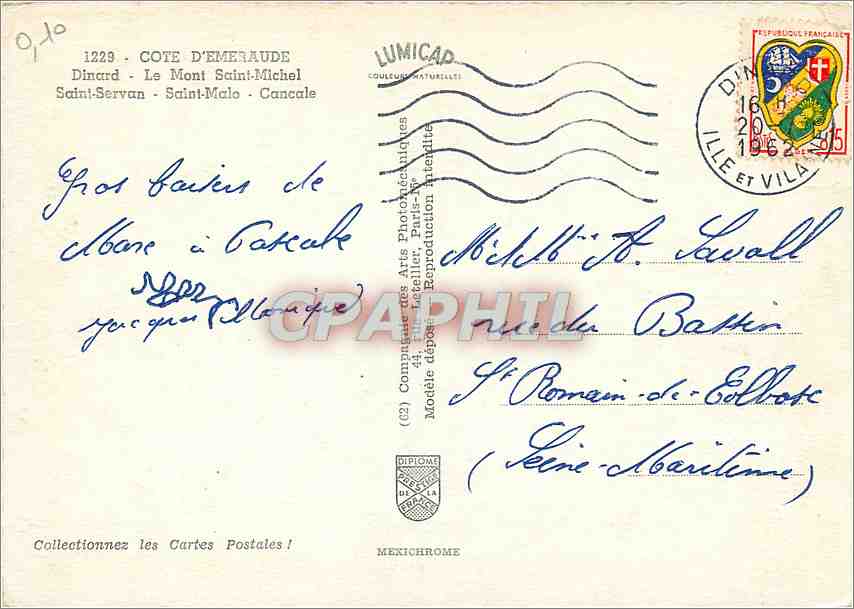 0,10
1229 - COTE D'EMERAUDE
Dinard - Le Mont Saint-Michel
Saint-Servan - Saint-Malo - Cancale
LUMICAP
COULEURS NATURELLES
REPUBLIQUE FRANÇAISE
0,15
DIN
16 H
20
1962
ILLE ET VILAINE
Gros baisers de
Marc à Pascale
Jacques Monique
(62) Compagnie des Arts Photomécaniques
44, rue Letellier, Paris-15e
Modèle déposé Reproduction interdite
M. & Mme A. Savall
rue du Bassin
St Romain-de-Colbosc
(Seine-Maritime)
CPAPHIL
DIPLOME
PRESTIGE
DE LA
FRANCE
Collectionnez les Cartes Postales !
MEXICHROME